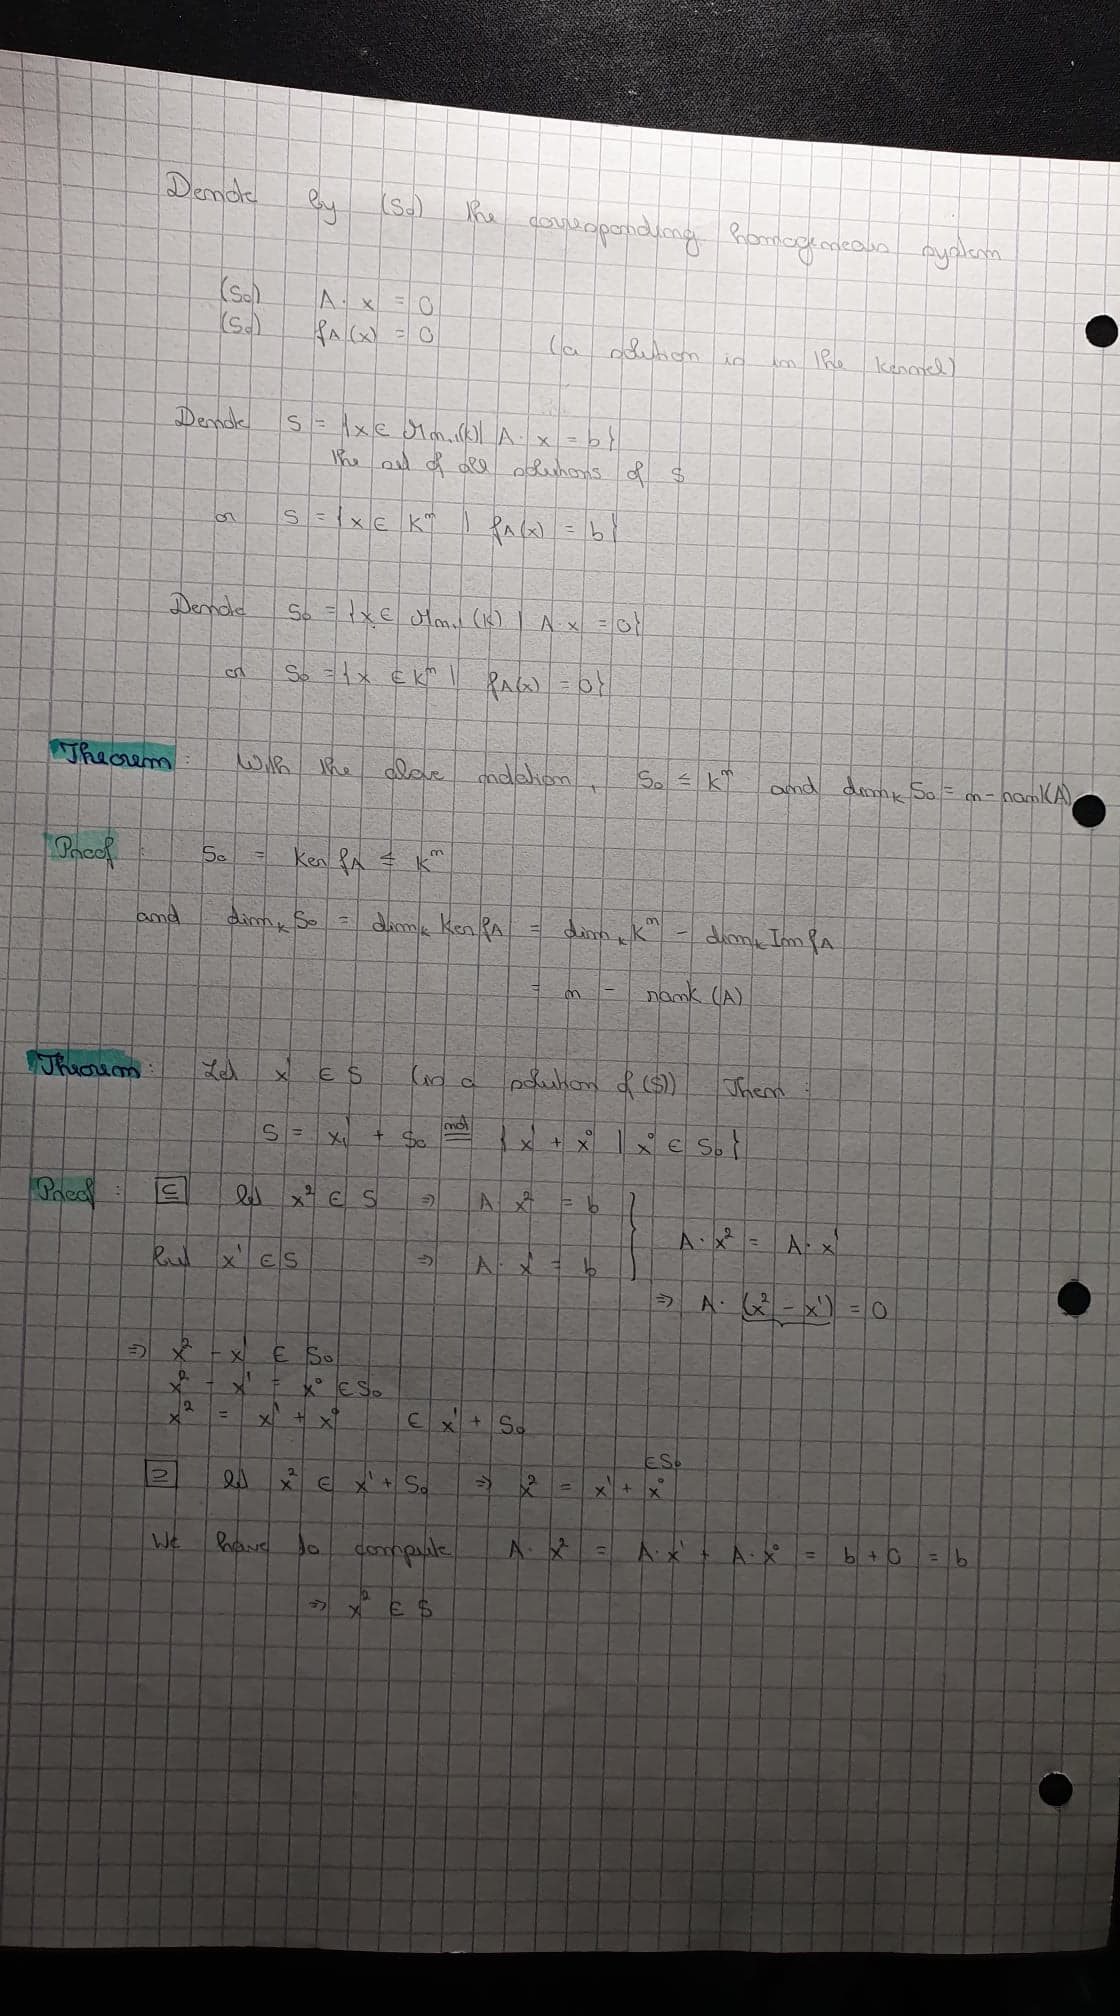 Denote by (S₀) the corresponding homogeneous system
(S₀) A · x = 0
(S₀) f_A(x) = 0
(a solution is in the kernel)
Denote S = {x ∈ M_{n,1}(K) | A · x = b}
the set of all solutions of S
or S = {x ∈ Kⁿ | f_A(x) = b}
Denote S₀ = {x ∈ M_{n,1}(K) | A · x = 0}
or S₀ = {x ∈ Kⁿ | f_A(x) = 0}
Theorem : With the above notation, S₀ ≤ Kⁿ and dim_K S₀ = n - rank(A)
Proof : S₀ = Ker f_A ≤ Kⁿ
and dim_K S₀ = dim_K Ker f_A = dim_K Kⁿ - dim_K Im f_A
= n - rank (A)
Theorem : Let x¹ ∈ S (is a solution of (S)) Then :
S = x¹ + S₀ \overset{not}{=} {x¹ + x⁰ | x⁰ ∈ S₀}
Proof : ⊆ let x² ∈ S ⇒ A x² = b
But x¹ ∈ S ⇒ A · x¹ = b } A · x² = A · x¹
⇒ A · (x² - x¹) = 0
⇒ x² - x¹ ∈ S₀
x² - x¹ = x⁰ ∈ S₀
x² = x¹ + x⁰ ∈ x¹ + S₀
⊇ let x² ∈ x¹ + S₀ ⇒ x² = x¹ + x⁰ ∈ S₀
We have to compute A · x² = A · x¹ + A · x⁰ = b + 0 = b
⇒ x² ∈ S